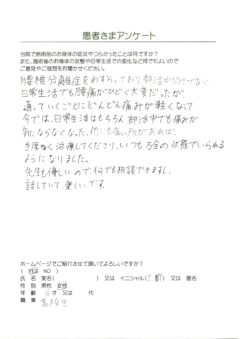 患者さまアンケート
当院で施術前のお身体の症状やつらかったことは何ですか?
また、施術後のお身体の状態や日常生活での変化など何でもよいので
ご意見やご感想をお聞かせください。
腰椎分離症をわずらっており部活だけでなく
日常生活でも腰痛がひどく大変だったが
通っていくごとにどんどん痛みが軽くなって
今では、日常生活はもちろん 部活中でも痛みが
気にならなくなった。他にも痛い所があれば、
き序なく治療してくださり、いつも万全の状態でいられる
ようになりました。
先生も優しいので何でも相談できますし、
話していて楽しいです。
ホームページでご紹介させて頂いてよろしいですか?
( YES NO )
氏 名 実名( ) 又は イニシャル( ) 又は 匿名
性 別 男性 女性
年 齢 才 又は 代
職 業 高校生